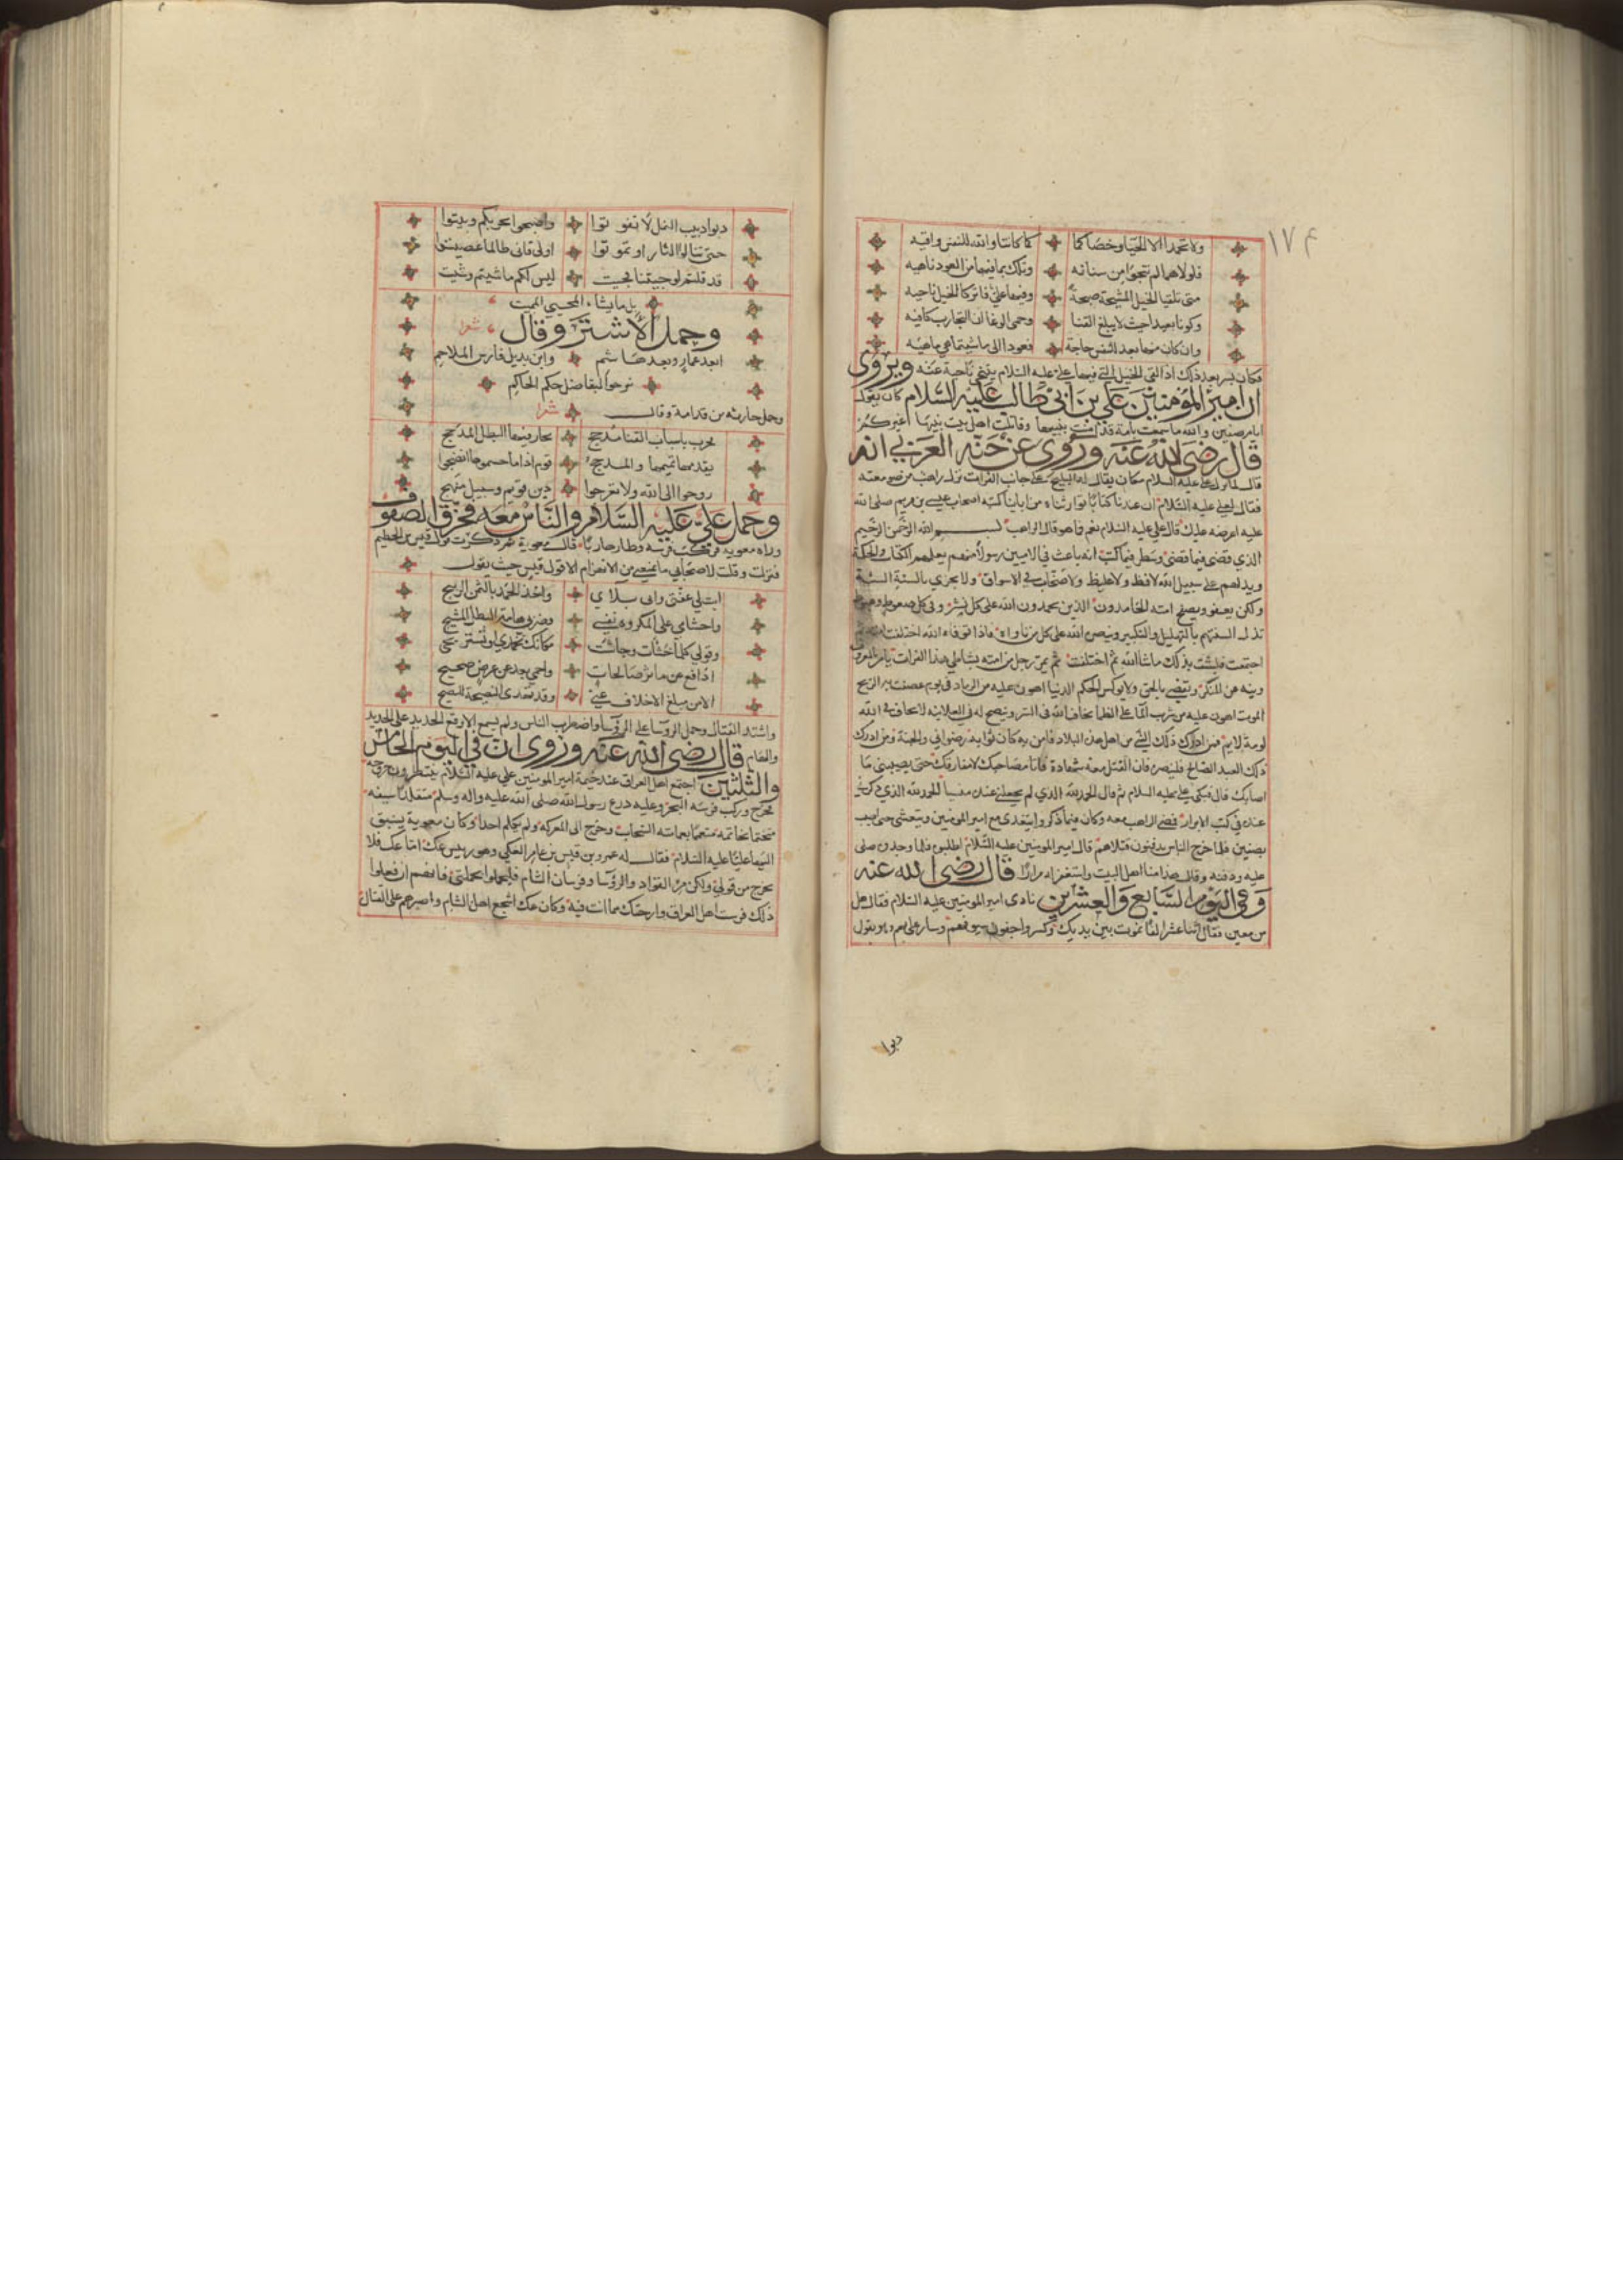 ١٧٤
ولا تحمدا الا الحيا وخصاكما كما كانتا والله للنفس واقيه
فلولاهما لم تنجوا من سنانه وتلك بما فيها من العود ناهيه
متى تلقيا الخيل المشيحة صبحة وفيها علي فاتركا الخيل ناحيه
وكونا بعيدا حيث لا يبلغ القنا وحمى الوغا ان التجارب كافيه
وان كان منها بعد للنفس حاجة فعودا الى ما شيتما هي ماهيه
فكان بسر بعد ذلك اذا لقى الخيل التي فيها علي عليه السلام يتنحى ناحية عنه ويروى
ان امير المؤمنين علي بن ابي طالب عليه السلام كان يقول
ايام صفين والله ما سمعت بامة قد امنت بنبيها وقاتلت اهل بيت نبيها غيركم
قال رضي الله عنه وروى عن حبة العربي انه
قال لما نزل علي عليه السلام مكان يقال له البليخ على جانب الفرات نزل راهب من صومعته
فقال لعلي عليه السلام ان عندنا كتابا توارثناه من ابائنا كتبه اصحاب عيسى بن مريم صلى الله
عليه اعرضه عليك قال علي عليه السلام نعم فما هو قال الراهب بسم الله الرحمن الرحيم
الذي قضى فيما قضى وسطر فيما كتب انه باعث في الاميين رسولا منهم يعلمهم الكتاب والحكمة
ويدلهم على سبيل الله لا فظ ولا غليظ ولا صخاب في الاسواق ولا يجزي بالسيئة السيئة
ولكن يعفو ويصفح امته الحامدون الذين يحمدون الله على كل نشز وفي كل صعود وهبوط
تذل السنتهم بالتهليل والتكبير وينصره الله على كل من ناواه فاذا توفاه الله اختلفت امته ثم
اجتمعت فلبثت بذلك ما شا الله ثم اختلفت ثم يمر رجل من امته بشاطي هذا الفرات يامر بالمعروف
وينهى عن المنكر ويقضي بالحق ولا يوكس الحكم الدنيا اهون عليه من الرماد في يوم عصفت به الريح
الموت اهون عليه من شرب الما على الظما يخاف الله في السر وينصح له في العلانية لا يخاف في الله
لومة لايم فمن ادرك ذلك النبي من اهل هذه البلاد فامن به كان ثوابه رضواني والجنة ومن ادرك
ذلك العبد الصالح فلينصره فان القتل معه شهادة فانا مصاحبك لا مفارقك حتى يصيبني ما
اصابك قال فبكى علي عليه السلام ثم قال الحمد لله الذي لم يجعلني عنده منسيا الحمد لله الذي ذكرني
عنده في كتب الابرار فمضى الراهب معه وكان فيما ذكروا يتغدى مع امير المومنين ويتعشى حتى اصيب
بصفين فلما خرج الناس يدفنون قتلاهم قال امير المومنين عليه السلام اطلبوه فلما وجدوه صلى
عليه ودفنه وقال هذا منا اهل البيت واستغفر له مرارا قال رضي الله عنه
وفي اليوم السابع والعشرين نادى امير المومنين عليه السلام فقال هل
من معين فقال اثنا عشر الفا نموت بين يديك وكسروا جفون سيوفهم وسار علي بهم وهو يقول
دبوا
دبوا دبيب النمل لا تفوتوا واصبحوا بحربكم وبيتوا
حتى تنالوا الثار او تموتوا اولى فاني طالما عصيت
قد قلتم لو جيتنا فجيت ليس لكم ما شيتم وشيت
بل ما يشاء المحيي المميت
وحمل الاشتر وقال شعر
ابعد عمار وبعد هاشم وابن بديل فارس الملاحم
نرجو البقا ضل حكم الحاكم
وحمل حارثة بن قدامة وقال شعر
يقدمها تميمها والمذحج قوم اذا ما حمسوها انضجوا
روحوا الى الله ولا تعرجوا دين قويم وسبيل منهج
وحمل علي عليه السلام والناس معه فخرق الصفوف
فنزلت وقلت لاصحابي ما يمنعني من الانهزام الا قول قيس حيث يقول
ابت لي عفتي وابى بلاي واخذ الحمد بالثمن الربيح
واجشامي على المكروه نفسي وضربي هامة البطل المشيح
وقولي كلما جشات وجاشت مكانك تحمدي او تستريحي
لادافع عن مآثر صالحات واحمي بعد عن عرض صحيح
واشتد القتال وحمل الروسا على الروسا واضطرب الناس ولم يسمع الا وقع الحديد على الحديد
والهام قال رضي الله عنه وروى ان في اليوم الخامس
والثلثين اجتمع اهل العراق عند خيمة امير المومنين علي عليه السلام ينتظرون خروجه
فخرج وركب فرسه البحر وعليه درع رسول الله صلى الله عليه واله وسلم متقلدا سيفه
متختما بخاتمه متعمما بعمامته السحاب وخرج الى المعركة ولم يكلم احدا وكان معوية يسبق
اليها عليا عليه السلام فقال له عمرو بن قيس بن عامر العكي وهو رييس عك اما عك فلا
يخرج من قولي ولكن مر القواد والروسا وفرسان الشام فليحملوا بحملتي فانهم ان فعلوا
ذلك فرست اهل العراق وارحتك مما انت فيه وكان عك اشجع اهل الشام واصبرهم على القتال